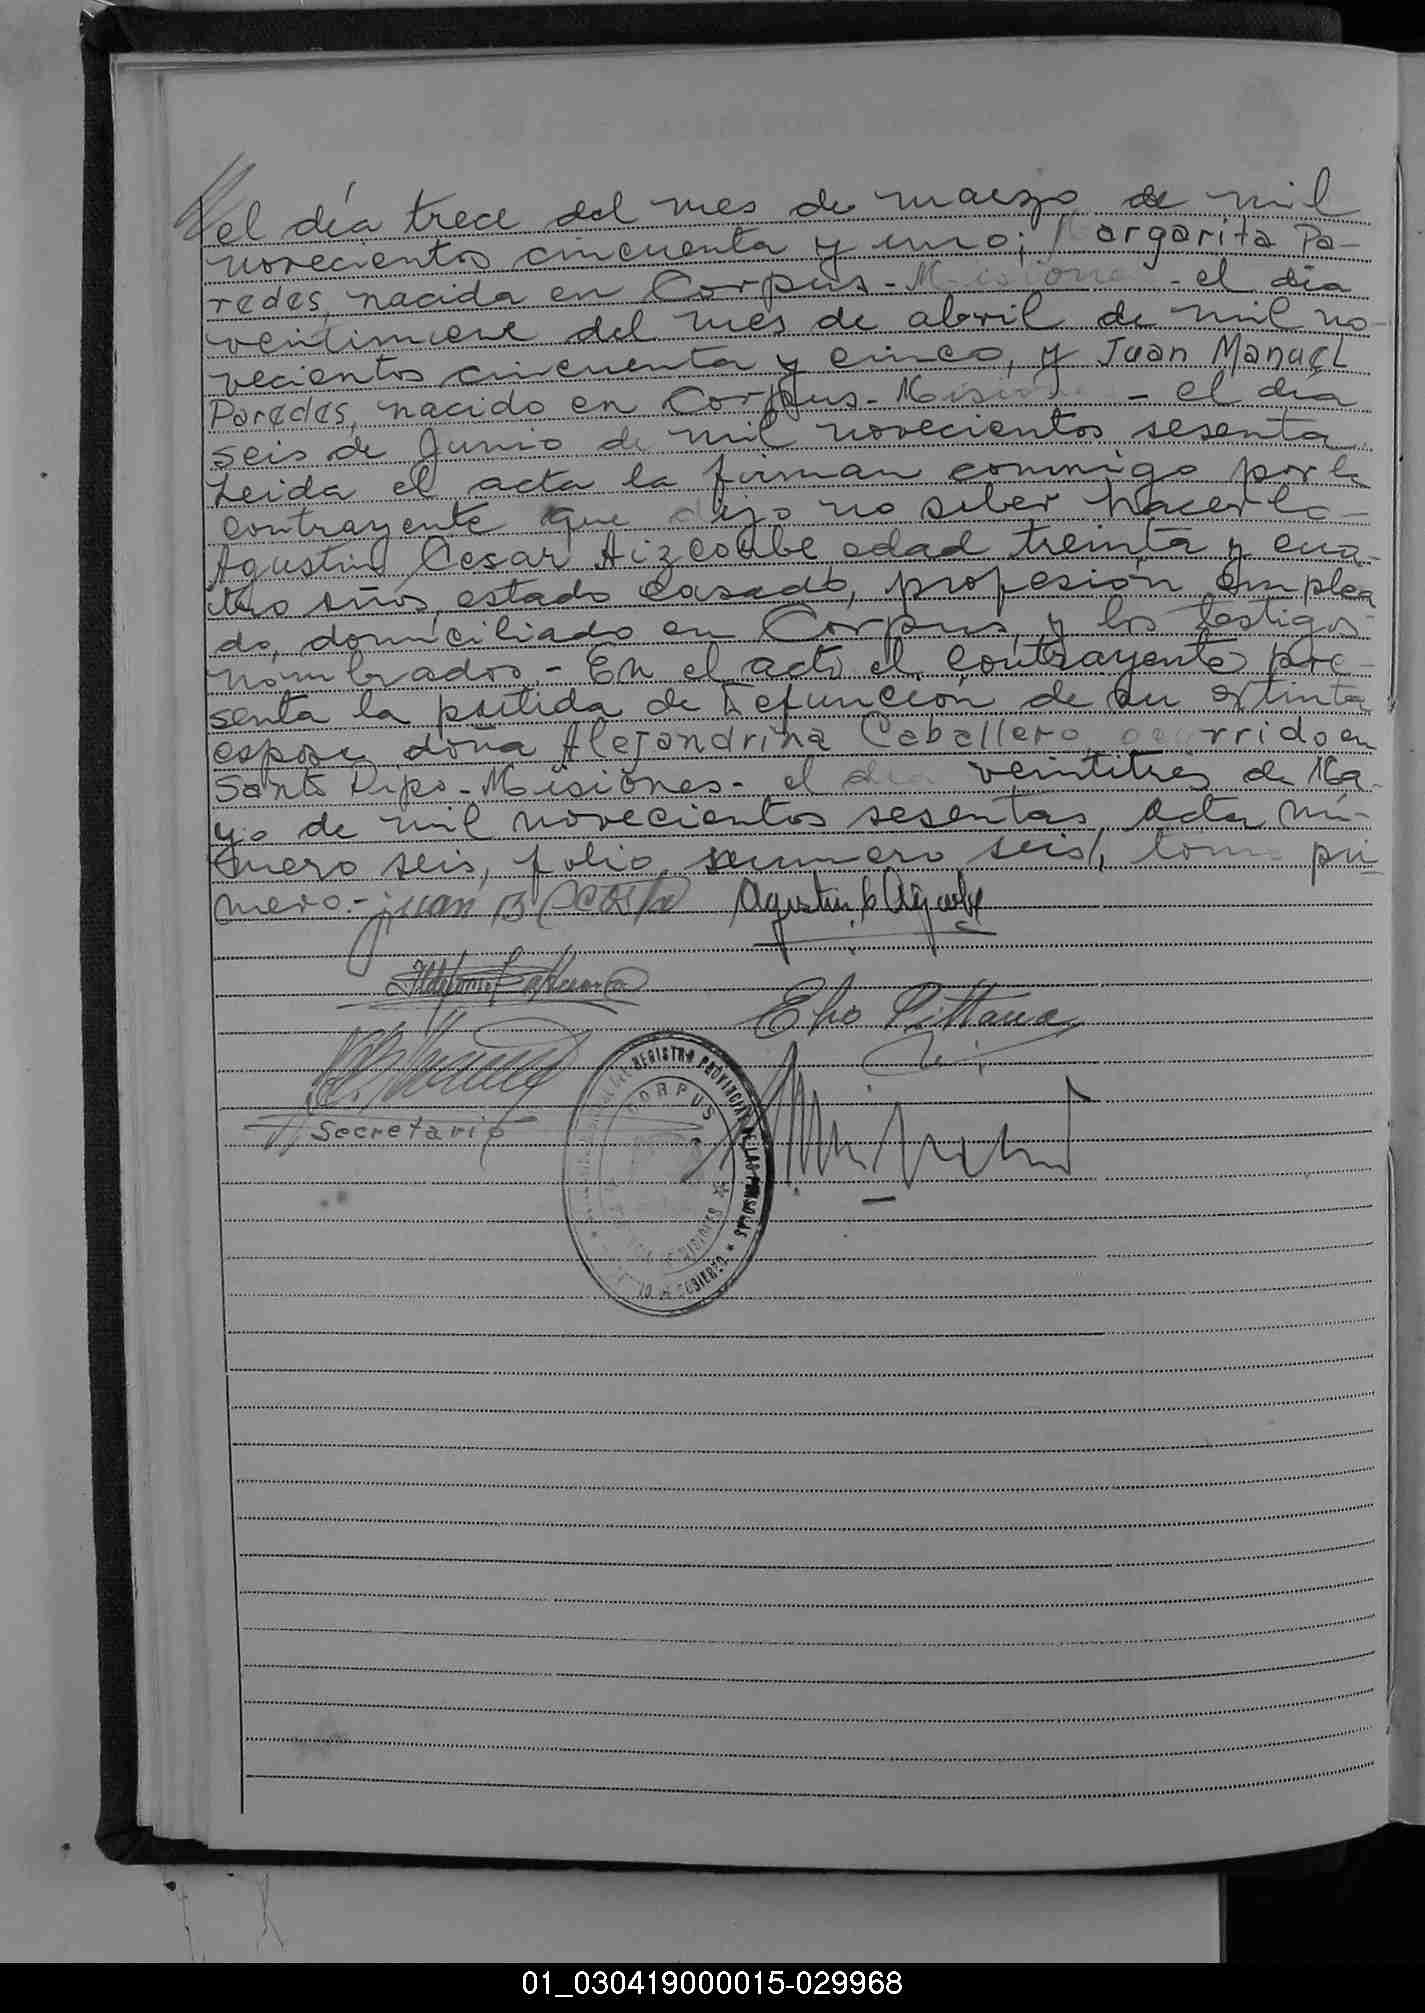 el día trece del mes de marzo de mil
novecientos cincuenta y uno; Margarita Pa-
redes, nacida en Corpus - Misiones - el día
veintinueve del mes de abril de mil no-
vecientos cincuenta y cinco, y Juan Manuel
Paredes, nacido en Corpus - Misiones - el día
seis de Junio de mil novecientos sesenta.
Leida el acta la firman conmigo por la
contrayente que dijo no saber hacerlo -
Agustin Cesar Aizcorbe edad treinta y cua-
tro años, estado casado, profesión emplea
do, domiciliado en Corpus, y los testigos
nombrados. - En el acto el contrayente pre-
senta la partida de Defunción de su extinta
esposa doña Alejandrina Caballero, ocurrido en
Santo Pipo - Misiones - el día veintitres de Ma-
yo de mil novecientos sesenta, Acta nú-
mero seis, folio numero seis, tomo pri
mero. - juan B Acosta Agustin C Aizcorbe
Elio Pittana
Secretario
REGISTRO PROVINCIAL DE LAS PERSONAS
CORPUS
MISIONES
01_030419000015-029968